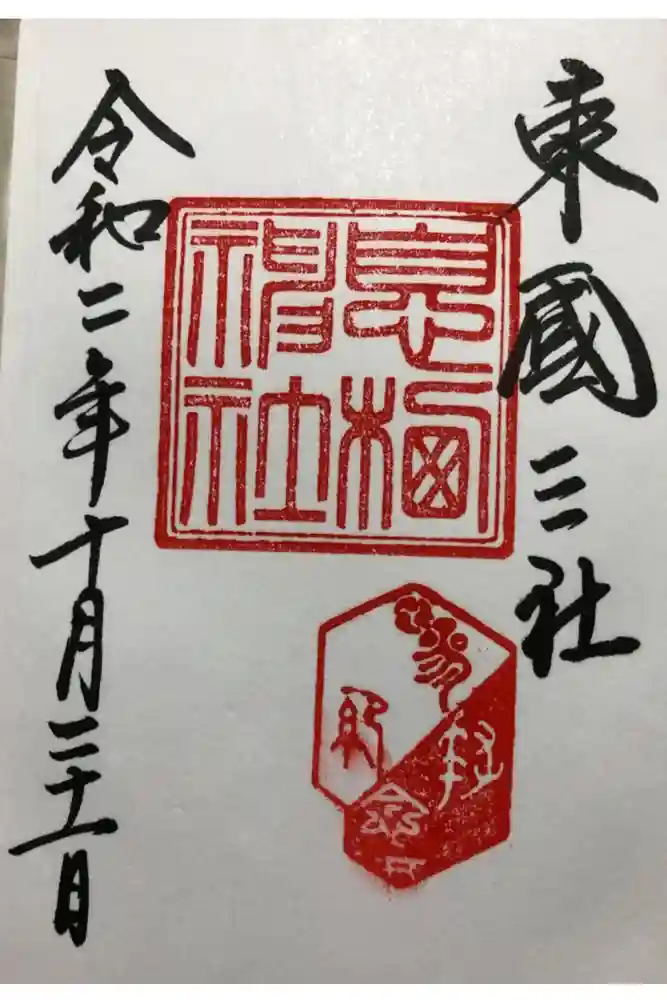 東國三社
息栖
神社
令和二年十月二十一日